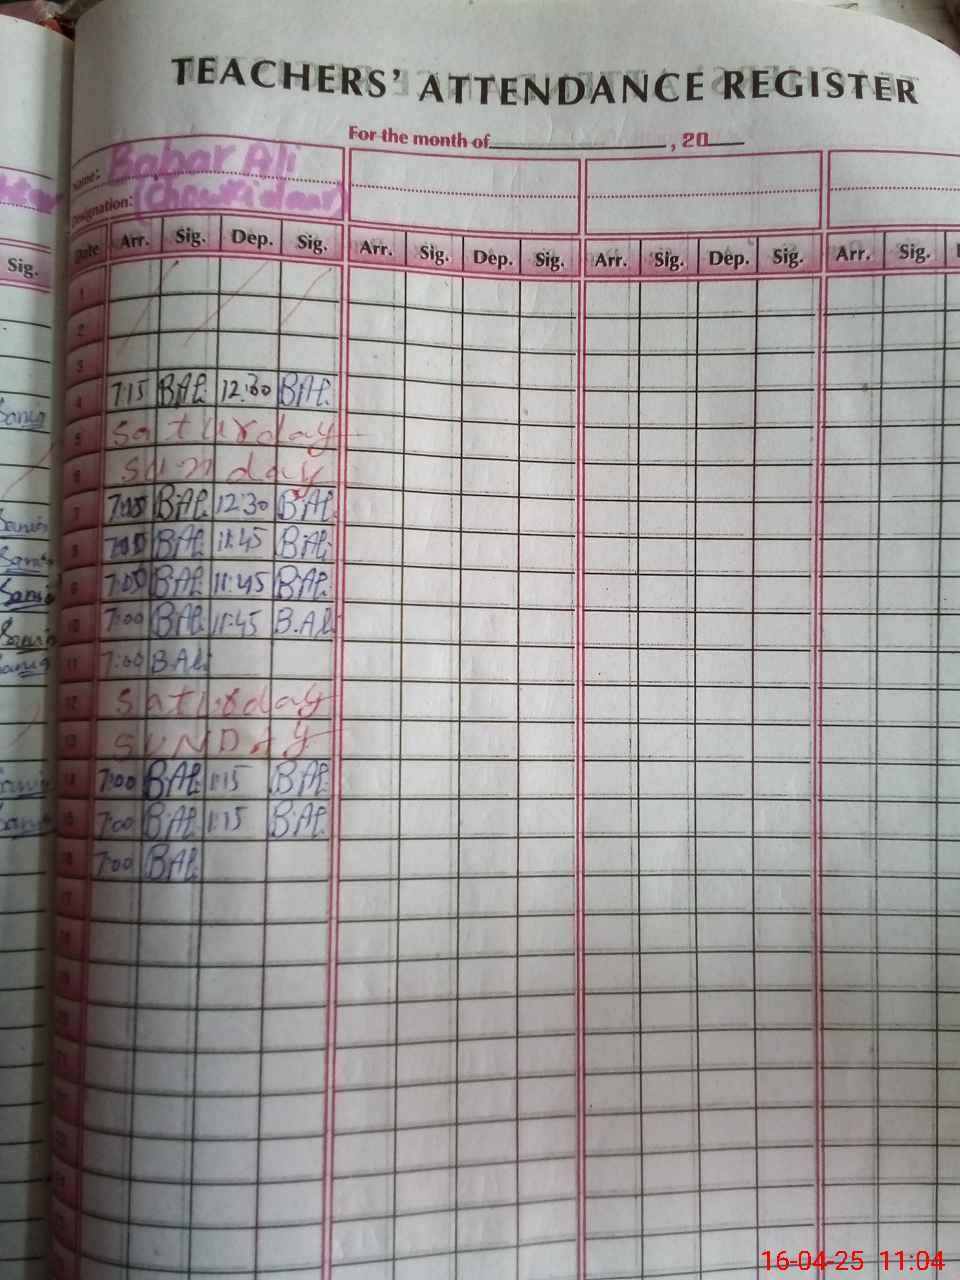 TEACHERS' ATTENDANCE REGISTER
For the month of , 20
Name: Babar Ali
Designation: (Chowkidar)
Date Arr. Sig. Dep. Sig. Arr. Sig. Dep. Sig. Arr. Sig. Dep. Sig. Arr. Sig.
Sig.
1
2
3
4 7:15 BAli 12:30 BAli
5 Saturday
6 Sunday
7 BAli 12:30 BAli
8 BAli 11:45 BAli
9 7:05 BAli 11:45 BAli
10 7:00 BAli 11:45 B.Ali
11 7:00 BAli
12 Saturday
13 SUNDAY
14 7:00 BAli 1:15 BAli
15 7:00 BAli 1:15 BAli
16 7:00 BAli
17
16-04-25 11:04